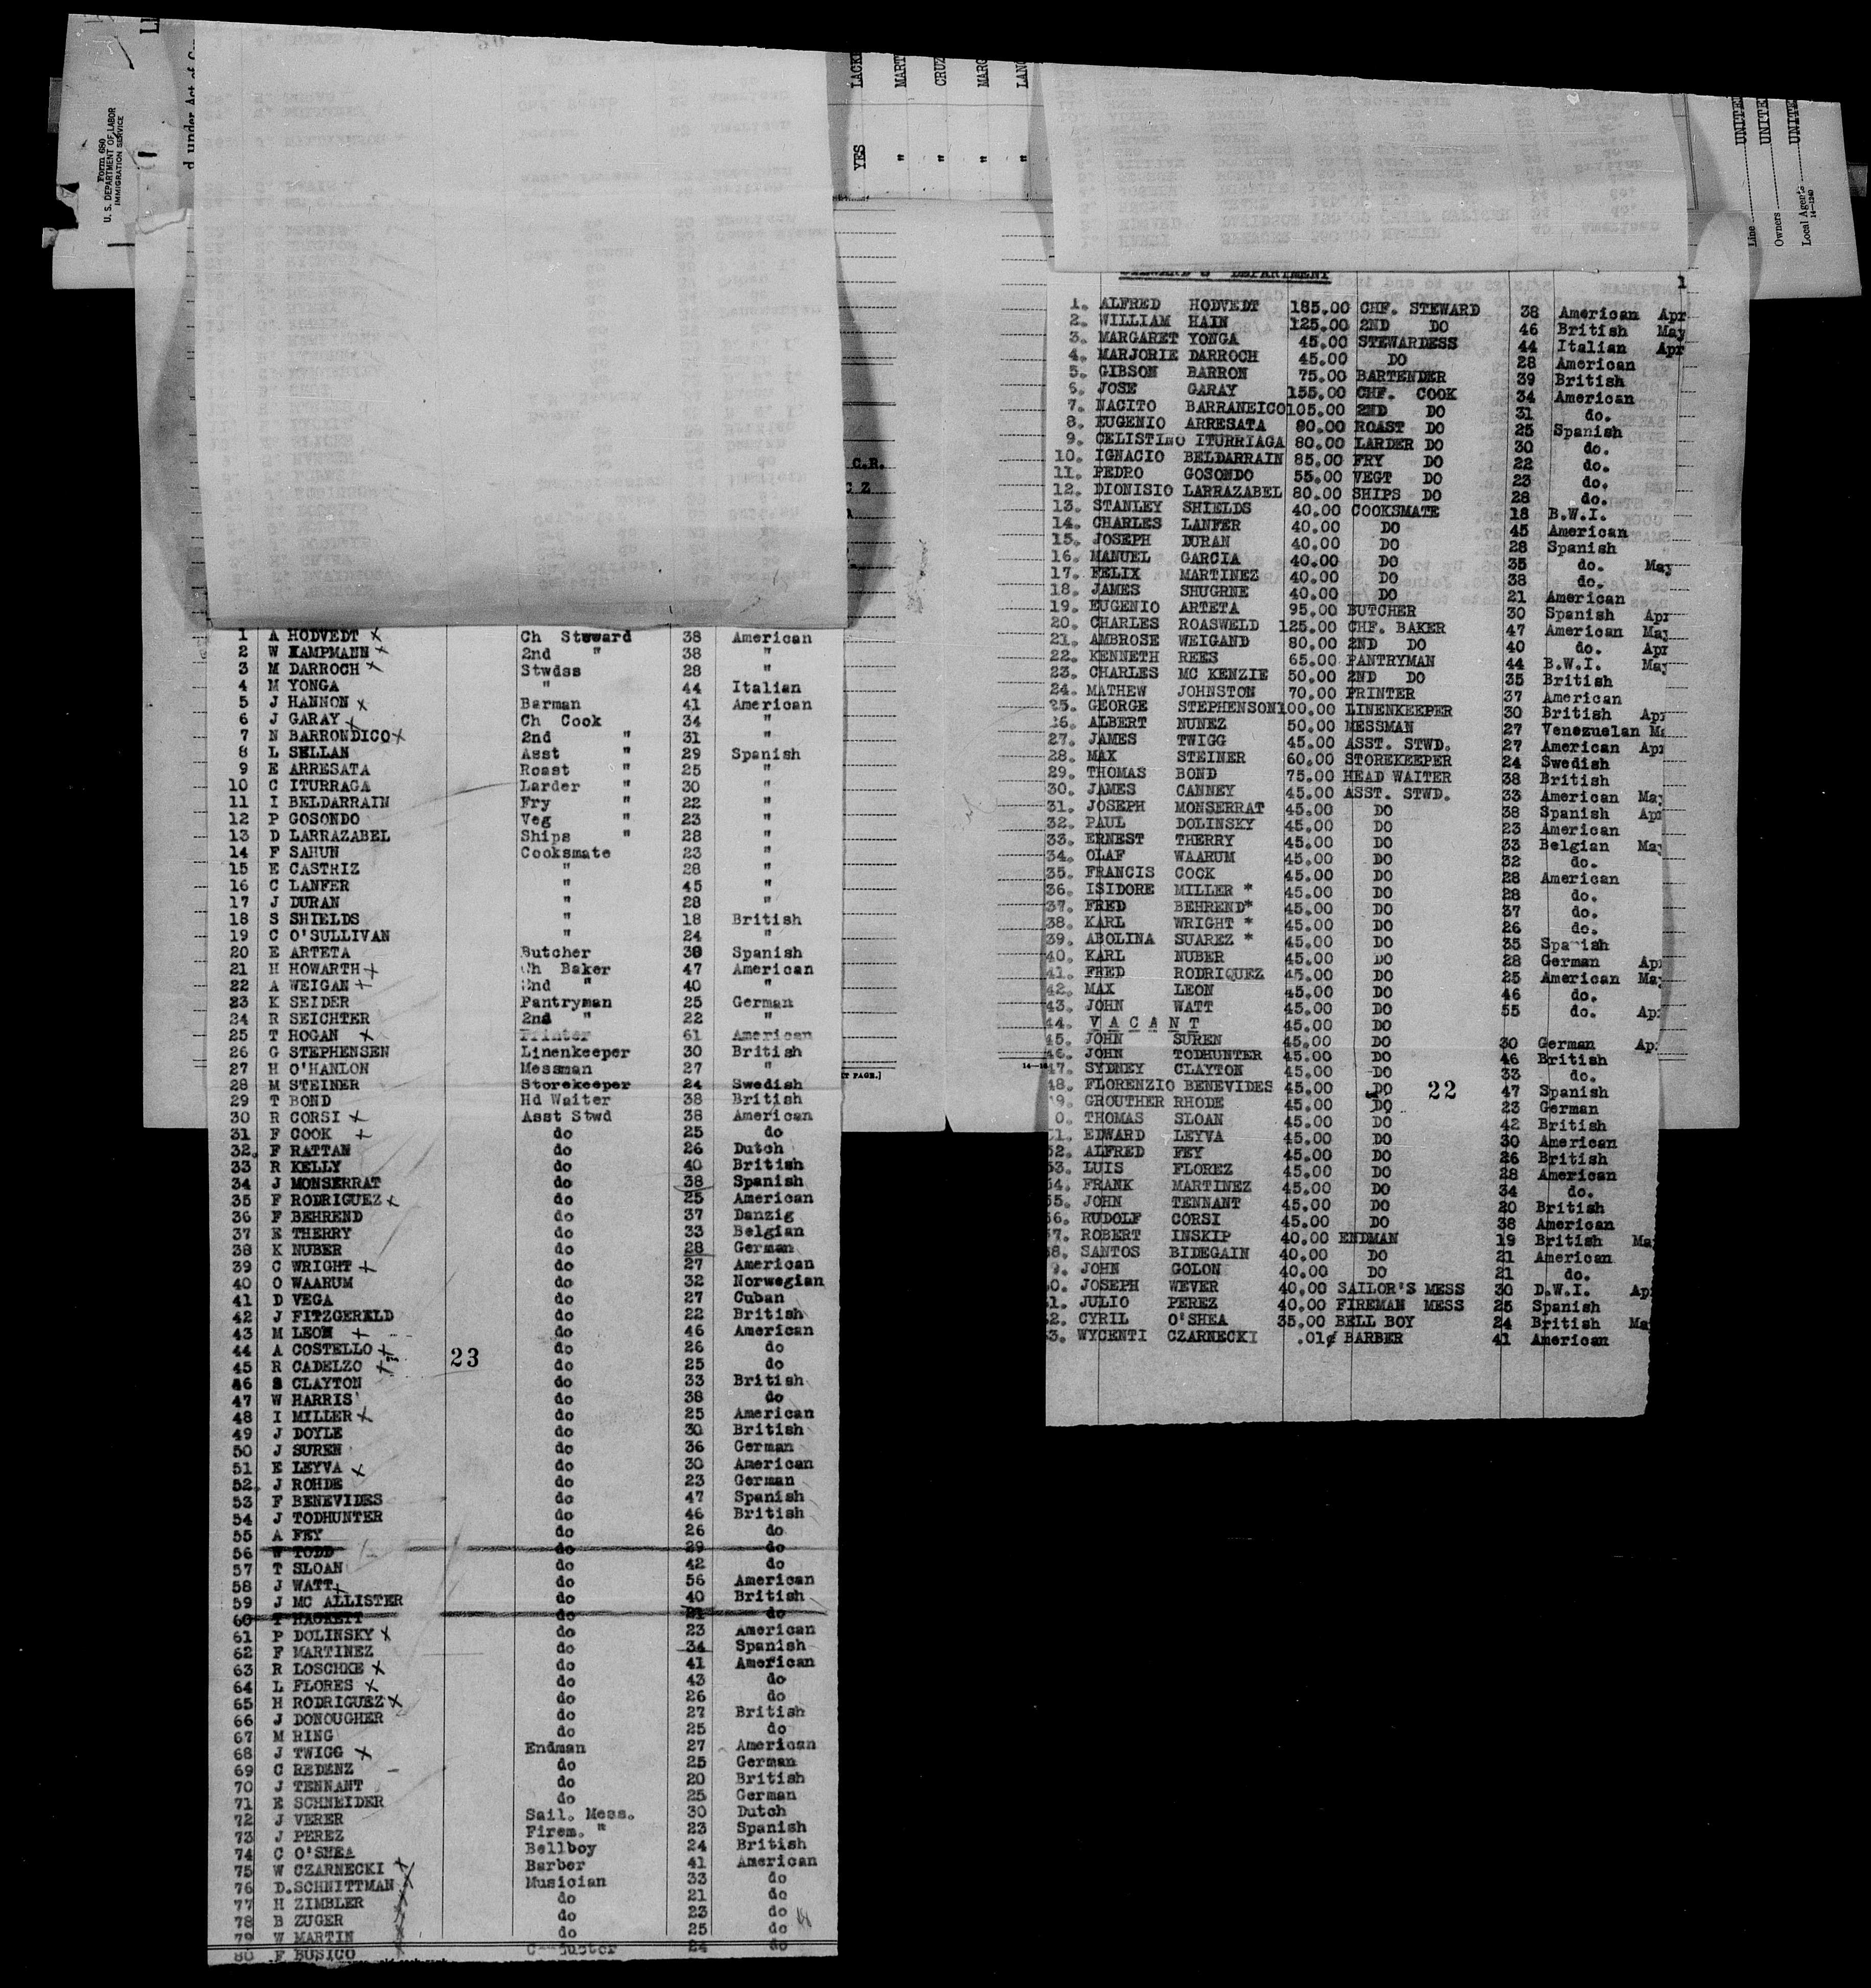 Form 680
U. S. DEPARTMENT OF LABOR
IMMIGRATION SERVICE
YES
C.R.
1 A HODVEDT x Ch Steward 38 American
2 W KAMPMANN x 2nd " 38 "
3 M DARROCH x Stwdss 28 "
4 M YONGA " 44 Italian
5 J HANNON x Barman 41 American
6 J GARAY x Ch Cook 34 "
7 N BARRONDICO x 2nd " 31 "
8 L SELLAN Asst " 29 Spanish
9 E ARRESATA Roast " 25 "
10 C ITURRAGA Larder " 30 "
11 I BELDARRAIN Fry " 22 "
12 P GOSONDO Veg " 23 "
13 D LARRAZABEL Ships " 28 "
14 F SAHUN Cooksmate 23 "
15 E CASTRIZ " 28 "
16 C LANFER " 45 "
17 J DURAN " 28 "
18 S SHIELDS " 18 British
19 C O'SULLIVAN " 24 "
20 E ARTETA Butcher 30 Spanish
21 H HOWARTH x Ch Baker 47 American
22 A WEIGAN x 2nd " 40 "
23 K SEIDER Pantryman 25 German
24 R SEICHTER 2nd " 22 "
25 T HOGAN x Printer 61 American
26 G STEPHENSEN Linenkeeper 30 British
27 H O'HANLON Messman 27 "
28 M STEINER Storekeeper 24 Swedish
29 T BOND Hd Waiter 38 British
30 R CORSI x Asst Stwd 38 American
31 F COOK x do 25 do
32. F RATTAN do 26 Dutch
33 R KELLY do 40 British
34 J MONSERRAT do 38 Spanish
35 F RODRIGUEZ x do 25 American
36 F BEHREND do 37 Danzig
37 E THERRY do 33 Belgian
38 K NUBER do 28 German
39 C WRIGHT x do 27 American
40 O WAARUM do 32 Norwegian
41 D VEGA do 27 Cuban
42 J FITZGERALD do 22 British
43 M LEON x do 46 American
44 A COSTELLO x do 26 do
23
45 R CADELZO x do 25 do
46 S CLAYTON do 33 British
47 W HARRIS do 38 do
48 I MILLER x do 25 American
49 J DOYLE do 30 British
50 J SUREN do 36 German
51 E LEYVA x do 30 American
52. J ROHDE do 23 German
53 F BENEVIDES do 47 Spanish
54 J TODHUNTER do 46 British
55 A FEY do 26 do
56 W TODD do 29 do
57 T SLOAN do 42 do
58 J WATT x do 56 American
59 J MC ALLISTER do 40 British
60 T HACKETT do 21 do
61 P DOLINSKY x do 23 American
62 F MARTINEZ do 34 Spanish
63 R LOSCHKE x do 41 American
64 L FLORES x do 43 do
65 H RODRIGUEZ x do 26 do
66 J DONOUGHER do 27 British
67 M RING do 25 do
68 J TWIGG x Endman 27 American
69 C REDENZ do 25 German
70 J TENNANT do 20 British
71 E SCHNEIDER do 25 German
72 J VERER Sail. Mess. 30 Dutch
73 J PEREZ Firem. " 23 Spanish
74 C O'SHEA Bellboy 24 British
75 W CZARNECKI x Barber 41 American
76 D.SCHNITTMAN x Musician 33 do
77 H ZIMBLER x do 21 do
78 B ZUGER x do 23 do
79 W MARTIN x do 25 do
80 F BUSICO x 24 do
UNITE
UNITE
UNITE
Line
Owners
Local Agents
14-1240
STEWARD'S DEPARTMENT
1
1. ALFRED HODVEDT 185.00 CHF. STEWARD 38 American Apr
2. WILLIAM HAIN 125.00 2ND DO 46 British May
3. MARGARET YONGA 45.00 STEWARDESS 44 Italian Apr
4. MARJORIE DARROCH 45.00 DO 28 American
5. GIBSON BARRON 75.00 BARTENDER 39 British
6. JOSE GARAY 155.00 CHF. COOK 34 American
7. NACITO BARRANEICO 105.00 2ND DO 31 do.
8. EUGENIO ARRESATA 90.00 ROAST DO 25 Spanish
9. CELISTINO ITURRIAGA 80.00 LARDER DO 30 do.
10. IGNACIO BELDARRAIN 85.00 FRY DO 22 do.
11. PEDRO GOSONDO 55.00 VEGT DO 23 do.
12. DIONISIO LARRAZABEL 80.00 SHIPS DO 28 do.
13. STANLEY SHIELDS 40.00 COOKSMATE 18 B.W.I.
14. CHARLES LANFER 40.00 DO 45 American
15. JOSEPH DURAN 40.00 DO 28 Spanish
16. MANUEL GARCIA 40.00 DO 35 do. May
17. FELIX MARTINEZ 40.00 DO 38 do.
18. JAMES SHUGRNE 40.00 DO 21 American
19. EUGENIO ARTETA 95.00 BUTCHER 30 Spanish Apr
20. CHARLES ROASWELD 125.00 CHF. BAKER 47 American May
21. AMBROSE WEIGAND 80.00 2ND DO 40 do. Apr
22. KENNETH REES 65.00 PANTRYMAN 44 B.W.I. May
23. CHARLES MC KENZIE 50.00 2ND DO 35 British
24. MATHEW JOHNSTON 70.00 PRINTER 37 American
25. GEORGE STEPHENSON 100.00 LINENKEEPER 30 British Apr
26. ALBERT NUNEZ 50.00 MESSMAN 27 Venezuelan Ma
27. JAMES TWIGG 45.00 ASST. STWD. 27 American Apr
28. MAX STEINER 60.00 STOREKEEPER 24 Swedish
29. THOMAS BOND 75.00 HEAD WAITER 38 British
30. JAMES CANNEY 45.00 ASST. STWD. 33 American May
31. JOSEPH MONSERRAT 45.00 DO 38 Spanish Apr
32. PAUL DOLINSKY 45.00 DO 23 American
33. ERNEST THERRY 45.00 DO 33 Belgian May
34. OLAF WAARUM 45.00 DO 32 do.
35. FRANCIS COCK 45.00 DO 28 American
36. ISIDORE MILLER * 45.00 DO 28 do.
37. FRED BEHREND* 45.00 DO 37 do.
38. KARL WRIGHT * 45.00 DO 26 do.
39. ABOLINA SUAREZ * 45.00 DO 35 Spanish
40. KARL NUBER 45.00 DO 28 German Apr
41. FRED RODRIQUEZ 45.00 DO 25 American May
42. MAX LEON 45.00 DO 46 do.
43. JOHN WATT 45.00 DO 55 do. Apr
44. V A C A N T 45.00 DO
45. JOHN SUREN 45.00 DO 30 German Apr
46. JOHN TODHUNTER 45.00 DO 46 British
47. SYDNEY CLAYTON 45.00 DO 33 do.
48. FLORENZIO BENEVIDES 45.00 DO 22 47 Spanish
9. GROUTHER RHODE 45.00 DO 23 German
0. THOMAS SLOAN 45.00 DO 42 British
1. EDWARD LEYVA 45.00 DO 30 American
52. ALFRED FEY 45.00 DO 26 British
53. LUIS FLOREZ 45.00 DO 28 American
54. FRANK MARTINEZ 45.00 DO 34 do.
55. JOHN TENNANT 45.00 DO 20 British
56. RUDOLF CORSI 45.00 DO 38 American
7. ROBERT INSKIP 40.00 ENDMAN 19 British Ma
8. SANTOS BIDEGAIN 40.00 DO 21 American
9. JOHN GOLON 40.00 DO 21 do.
0. JOSEPH WEVER 40.00 SAILOR'S MESS 30 D.W.I. Ap
1. JULIO PEREZ 40.00 FIREMAN MESS 25 Spanish
2. CYRIL O'SHEA 35.00 BELL BOY 24 British Ma
3. WYCENTI CZARNECKI .01¢ BARBER 41 American